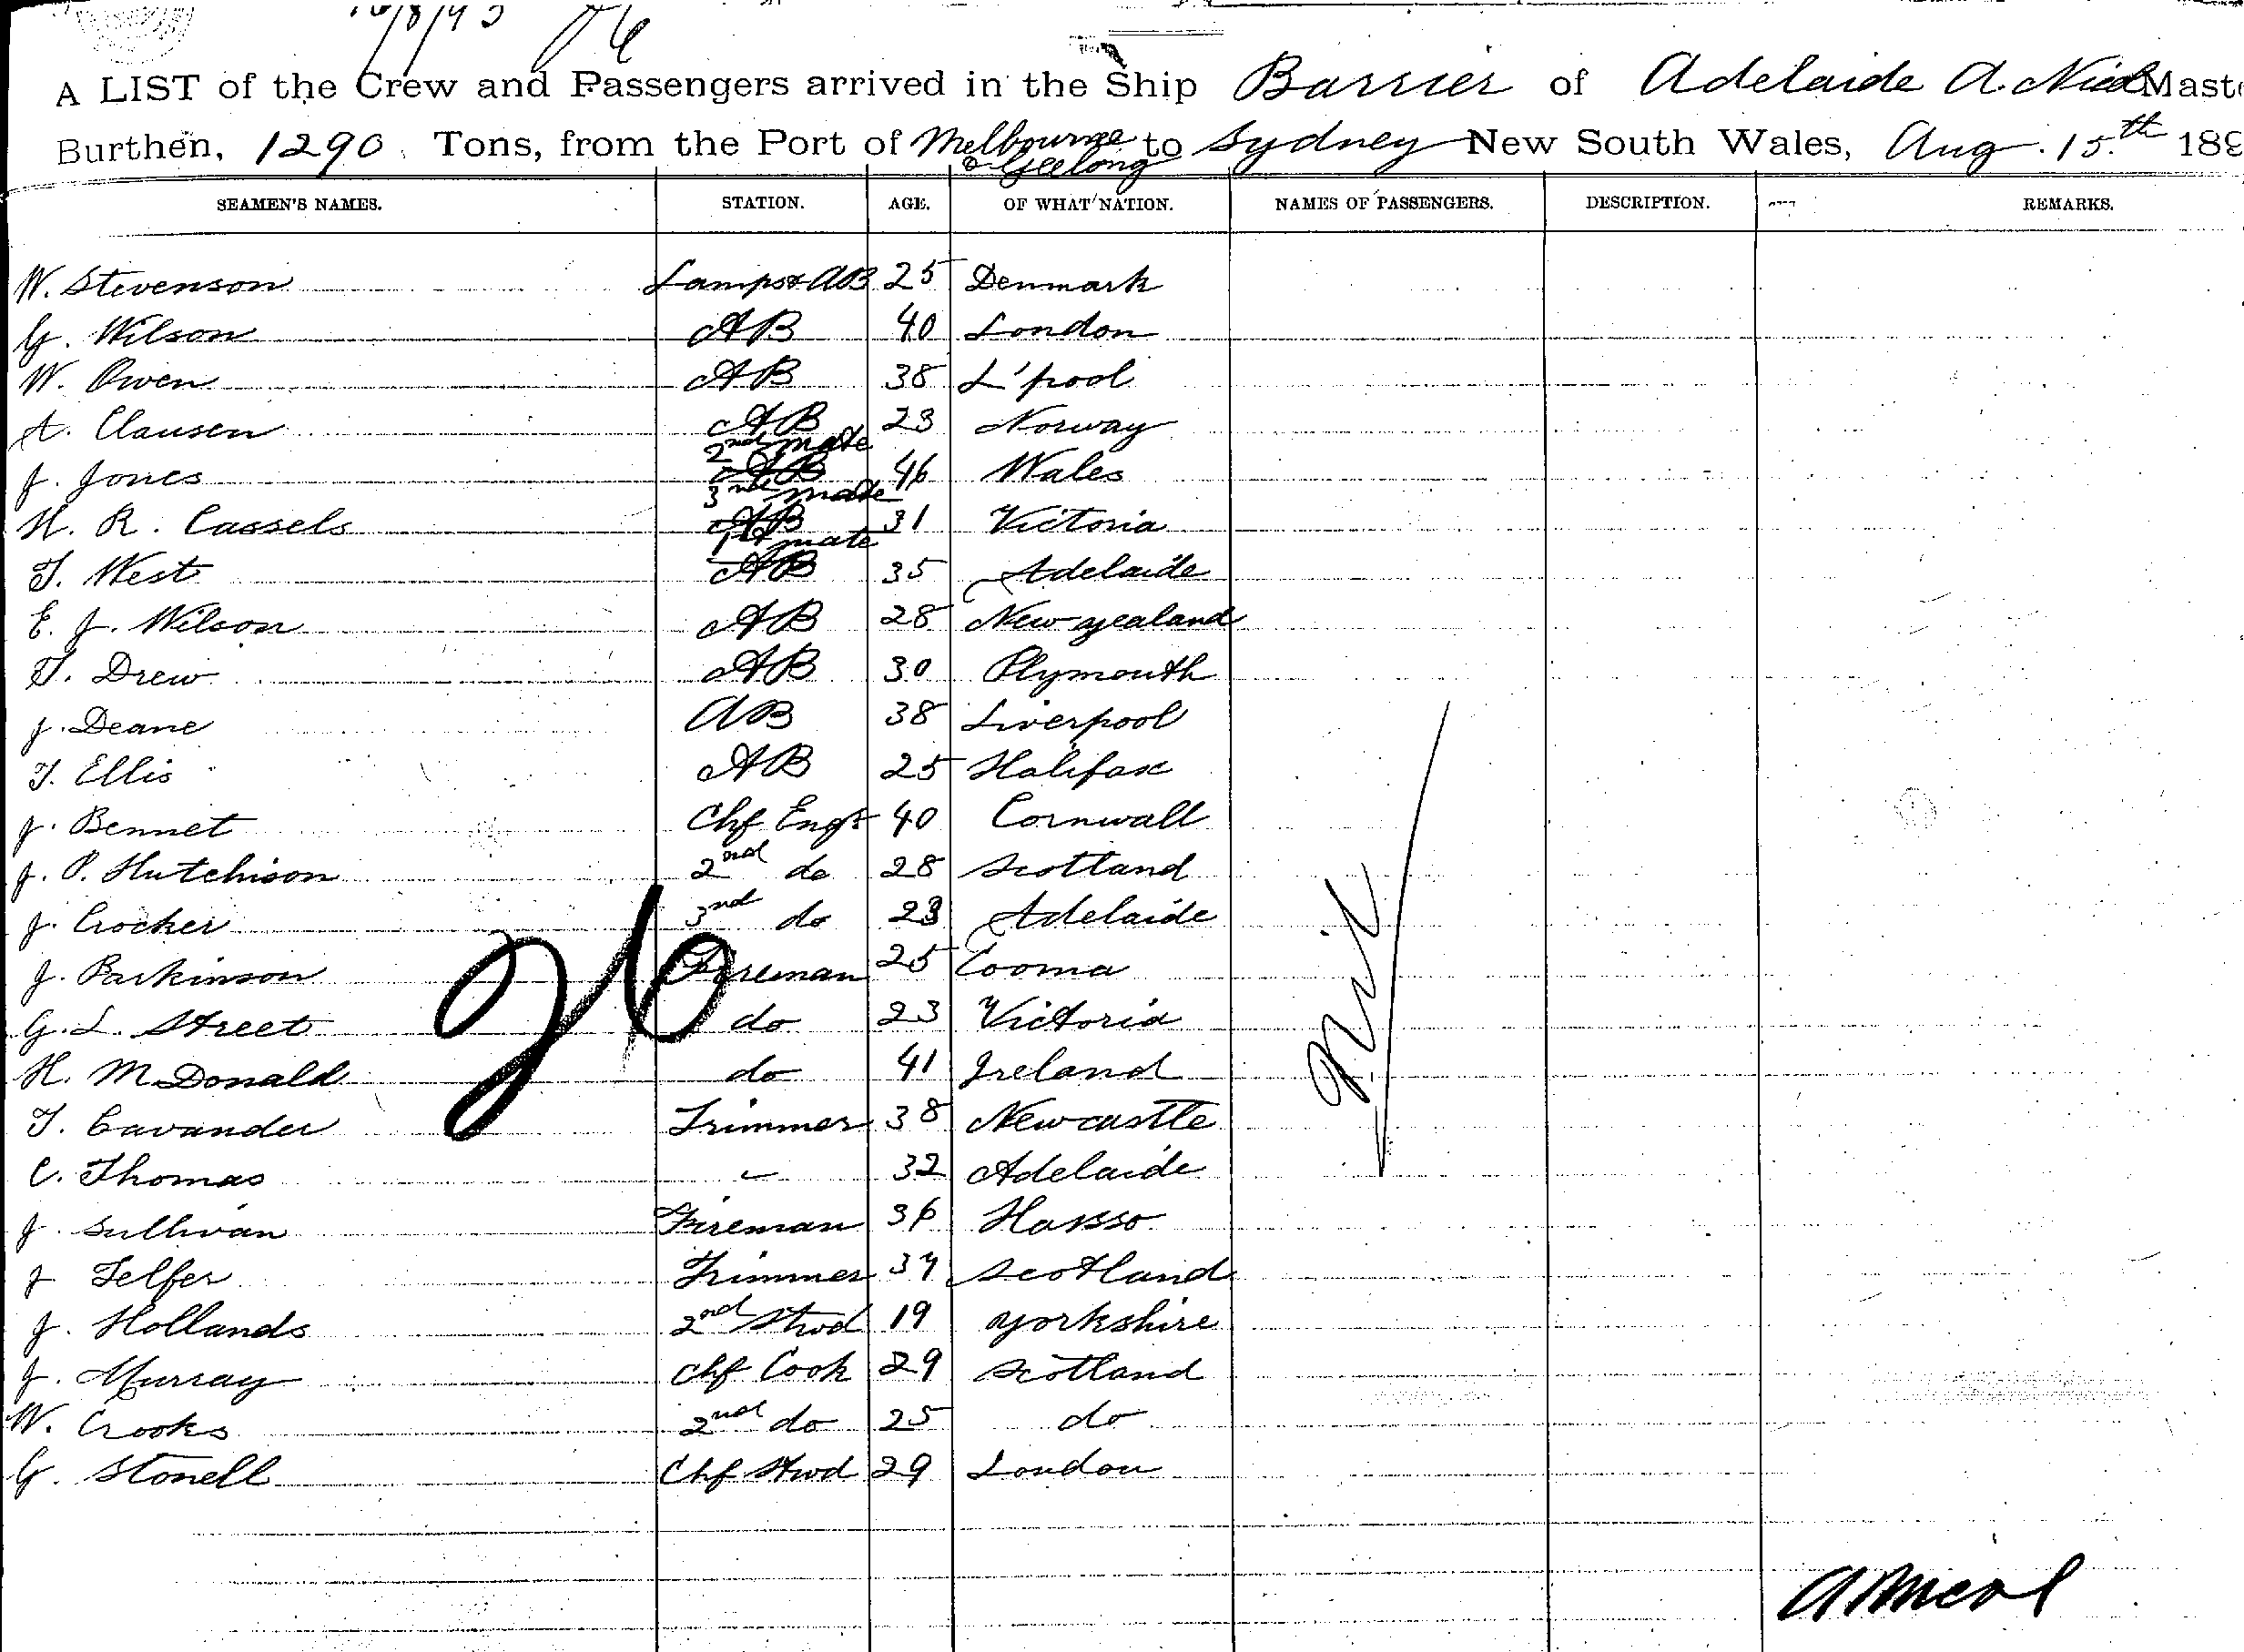 A LIST of the Crew and Passengers arrived in the Ship Barrier of Adelaide A. Nicol Maste
Burthen, 1290 Tons, from the Port of Melbourne & Geelong to Sydney New South Wales, Aug. 15.th 189
SEAMEN'S NAMES. STATION. AGE. OF WHAT NATION. NAMES OF PASSENGERS. DESCRIPTION. REMARKS.
W. Stevenson Lamps & AB 25 Denmark
G. Wilson AB 40 London
W. Owen AB 38 L'pool
A. Clausen AB 23 Norway
J. Jones 2nd mate AB 46 Wales
H. R. Cassels 3rd mate AB 31 Victoria
T. West 1st mate AB 35 Adelaide
E. J. Wilson AB 28 New Zealand
T. Drew AB 30 Plymouth
J. Deane AB 38 Liverpool
T. Ellis AB 25 Halifax
J. Bennet Chf Engr 40 Cornwall
J. P. Hutchison 2nd do 28 Scotland
J. Crocker 3nd do 23 Adelaide
J. Parkinson Fireman 25 Cooma
G. L. Street do 23 Victoria
H. McDonald do 41 Ireland
T. Cavander Trimmer 38 Newcastle
C. Thomas 32 Adelaide
J. Sullivan Fireman 36
J Telfer Trimmer 34 Scotland
J. Hollands 2nd Stwd 19 Yorkshire
J. Murray Chf Cook 29 Scotland
W. Crooks 2nd do 25 do
G. Stonell Chf Stwd 29 London
Nil
A Nicol